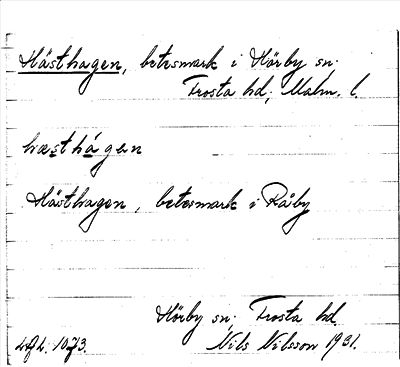 Hästhagen, betesmark i Hörby sn.
Frosta hd, Malm. l.
hæsthágen
Hästhagen, betesmark i Råby
Hörby sn, Frosta hd.
Nils Nilsson 1931.